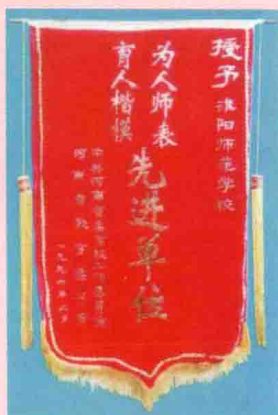 授予淮阳师范学校
为人师表
育人楷模
先进单位
中共河南省委高校工作委员会
河南省教育委员会